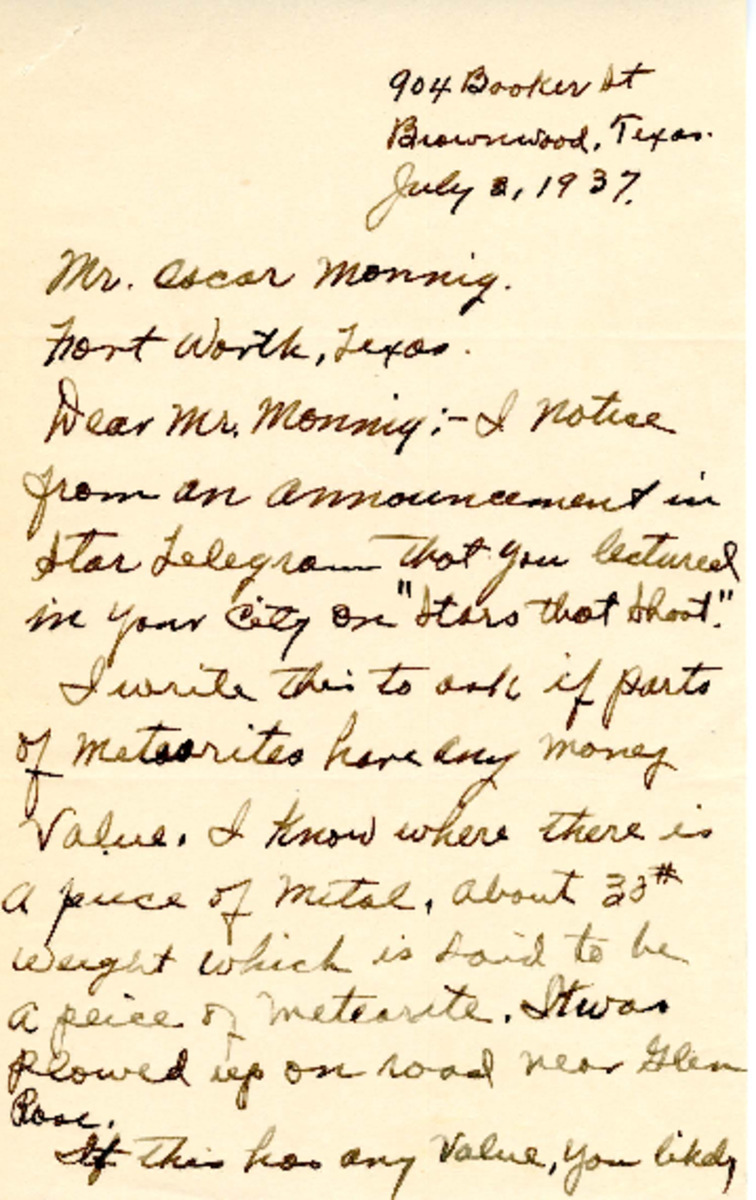 904 Booker St
Brownwood, Texas.
July 2, 1937.
Mr. Oscar Monnig.
Fort Worth, Texas.
Dear Mr. Monnig:- I notice
from an announcement in
Star Telegram that you lectured
in your city on "Stars that Shoot".
I write this to ask if parts
of meteorites have any money
value. I know where there is
a puece of metal, about 30#
weight which is said to be
a peice of meteorite. It was
plowed up on road near Glen
Rose.
If this has any value, you likely